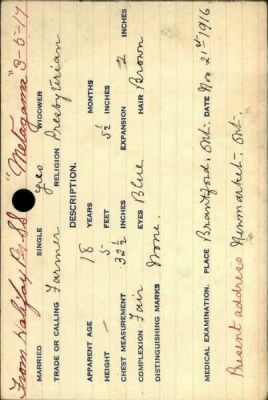 From Halifax SS "Metagama" 3-5-17
MARRIED SINGLE yes WIDOWER
TRADE OR CALLING Farmer RELIGION Presbyterian
DESCRIPTION.
APPARENT AGE 18 YEARS MONTHS
HEIGHT 5 FEET 5½ INCHES
CHEST MEASUREMENT 32½ INCHES EXPANSION 2 INCHES
COMPLEXION Fair EYES Blue HAIR Brown
DISTINGUISHING MARKS None.
MEDICAL EXAMINATION. PLACE Brantford, Ont. DATE Nov 21st 1916
Present address Newmarket-Ont.